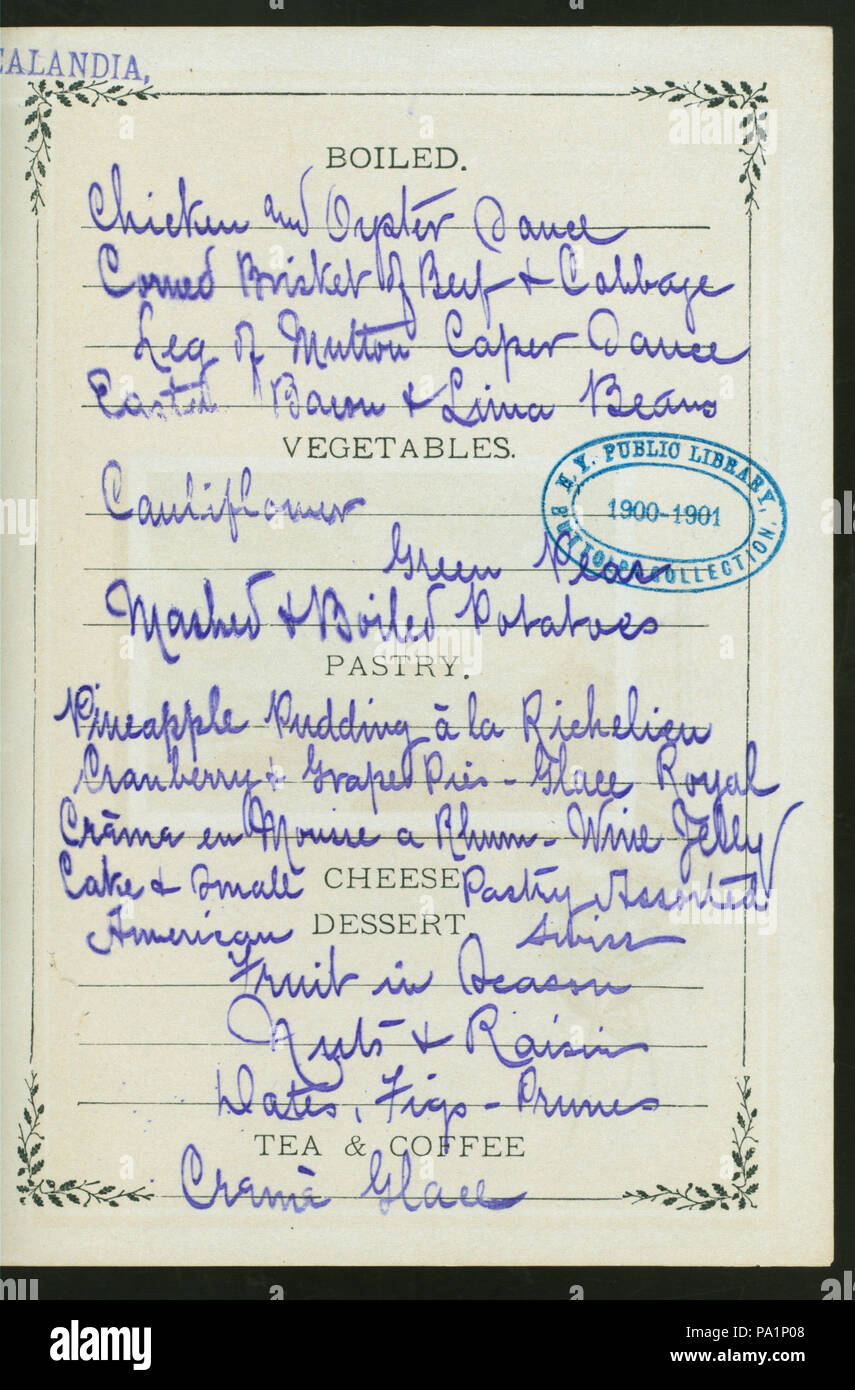 EALANDIA,
BOILED.
Chicken and Oyster Sauce
Corned Brisket of Beef & Cabbage
Leg of Mutton Caper Sauce
Bacon & Lima Beans
VEGETABLES.
N.Y. PUBLIC LIBRARY,
1900-1901
BUTTOLPH COLLECTION.
Cauliflower
Green Peas
Mashed & Boiled Potatoes
PASTRY.
Pineapple Pudding à la Richelieu
Cranberry & Grape Pies - Glace Royal
Crāma en Mousse a Rhum - Wine Jelly
Cake & Small Pastry Assorted
CHEESE
American Swiss
DESSERT.
Fruit in Season
Nuts & Raisin
Dates, Figs - Prunes
TEA & COFFEE
Cramā Glace
alamy
Image ID: PA1P08
www.alamy.com